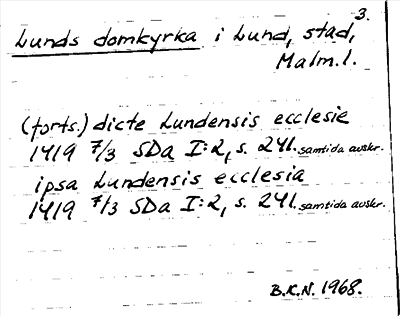 3.
Lunds domkyrka i Lund, stad,
Malm.l.
(forts.) dicte Lundensis ecclesie
1419 7/3 SDa I:2, s. 241. samtida avskr.
ipsa Lundensis ecclesia
1419 7/3 SDa I:2, s. 241. samtida avskr.
B.K.N. 1968.